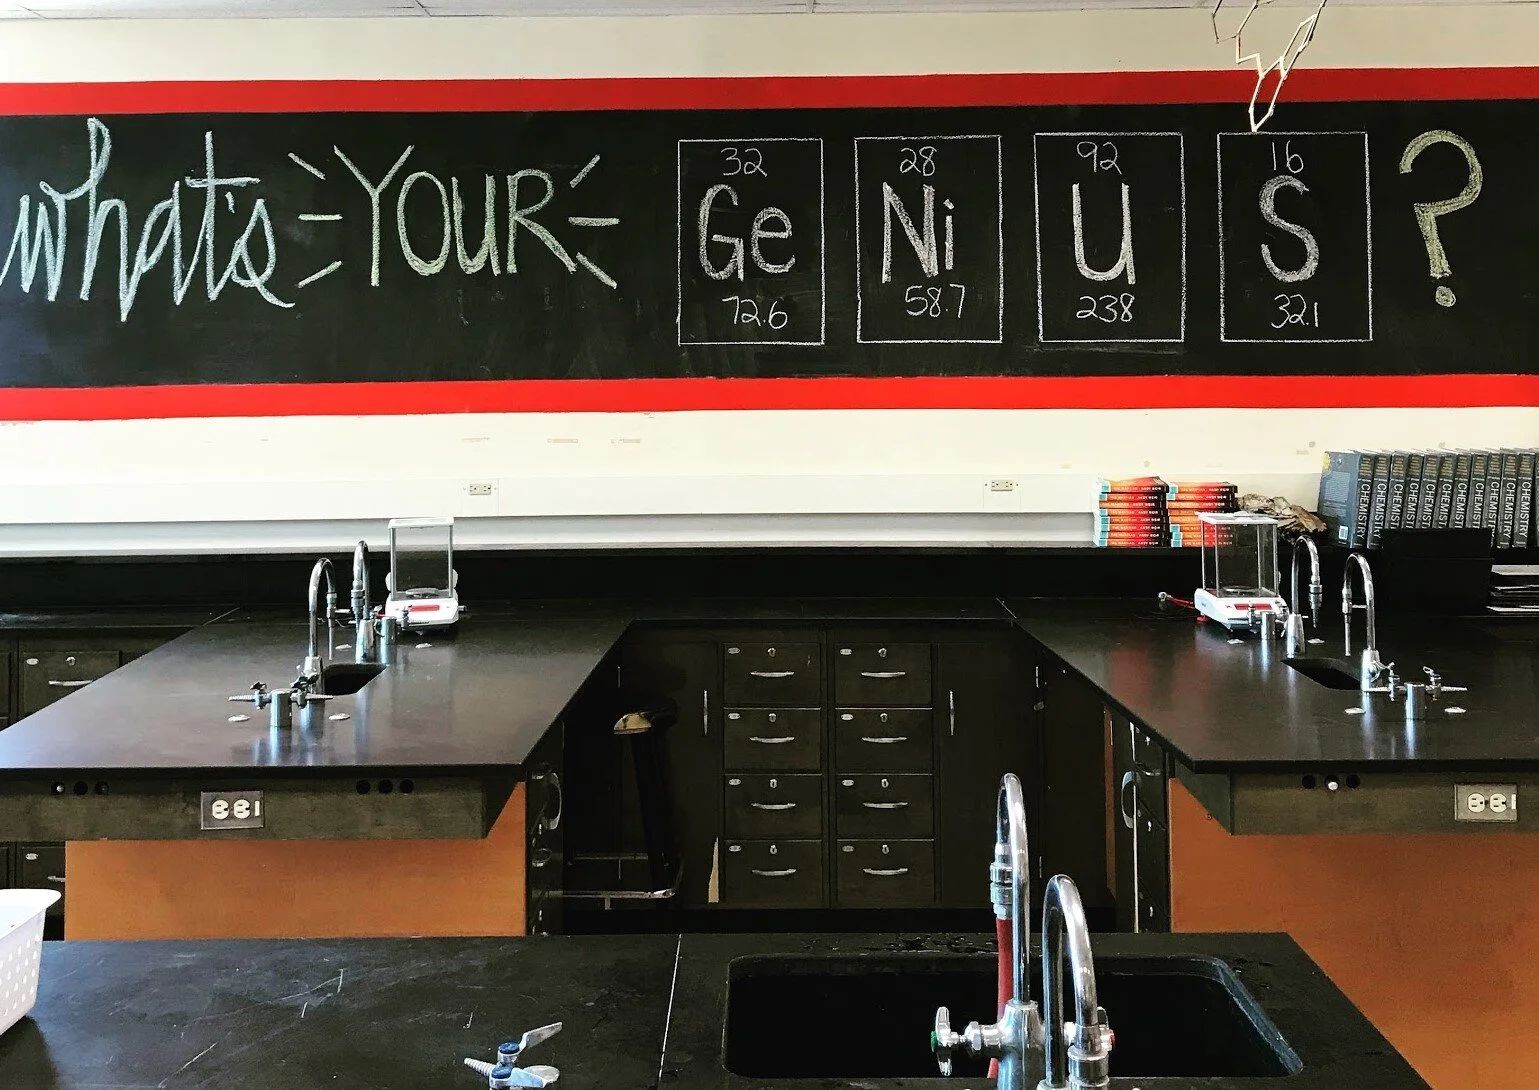 what's YOUR GeNiUS?
32 28 92 16
Ge Ni U S
72.6 58.7 238 32.1
CHEMISTRY
CHEMISTRY
CHEMISTRY
CHEMISTRY
CHEMISTRY
CHEMISTRY
CHEMISTRY
CHEMISTRY
THE MARTIAN ANDY WEIR